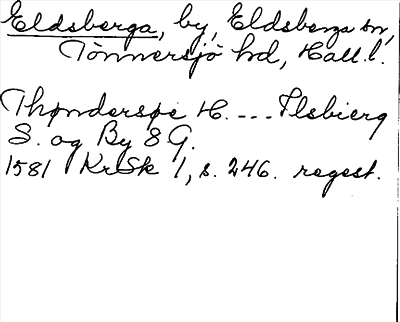 Eldsberga, by, Eldsberga sn,
Tönnersjö hd, Hall.l.
Thønderspe H. --- Ilsbierg
S. og By 8 G.
1581 KrSk 1, s. 246. regest.